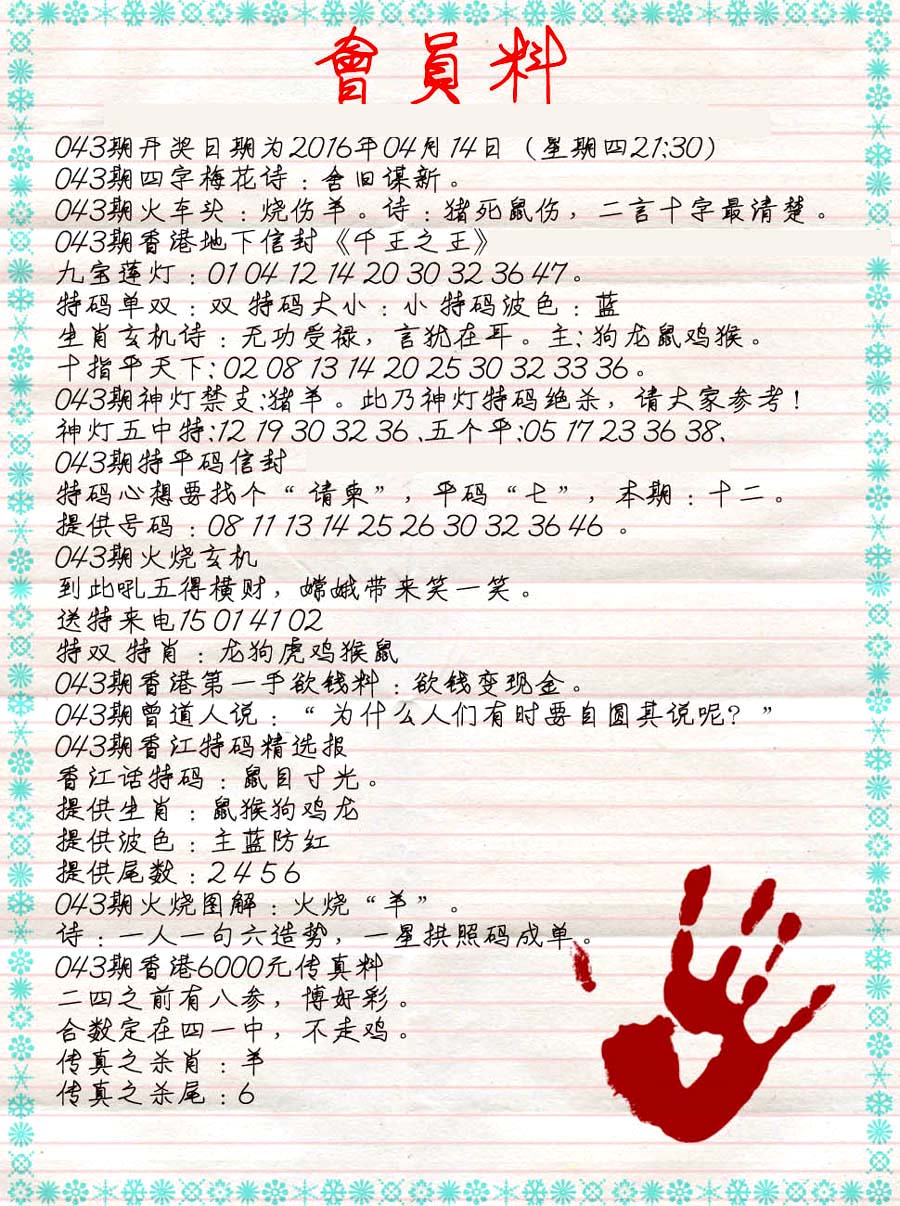 會員料
043期开奖日期为2016年04月14日（星期四21:30）
043期四字梅花诗：舍旧谋新。
043期火车头：烧伤羊。诗：猪死鼠伤，二言十字最清楚。
043期香港地下信封《千王之王》
九宝莲灯：01 04 12 14 20 30 32 36 47。
特码单双：双 特码大小：小 特码波色：蓝
生肖玄机诗：无功受禄，言犹在耳。主:狗龙鼠鸡猴。
十指平天下:02 08 13 14 20 25 30 32 33 36。
043期神灯禁支:猪羊。此乃神灯特码绝杀，请大家参考！
神灯五中特:12 19 30 32 36 、五个平:05 17 23 36 38、
043期特平码信封
特码心想要找个“请柬”，平码“七”，本期：十二。
提供号码：08 11 13 14 25 26 30 32 36 46 。
043期火烧玄机
到此吼五得横财，嫦娥带来笑一笑。
送特来电15 01 41 02
特双 特肖：龙狗虎鸡猴鼠
043期香港第一手欲钱料：欲钱变现金。
043期曾道人说：“为什么人们有时要自圆其说呢？”
043期香江特码精选报
香江话特码：鼠目寸光。
提供生肖：鼠猴狗鸡龙
提供波色：主蓝防红
提供尾数：2 4 5 6
043期火烧图解：火烧“羊”。
诗：一人一句六造势，一星拱照码成单。
043期香港6000元传真料
二四之前有八参，博好彩。
合数定在四一中，不走鸡。
传真之杀肖：羊
传真之杀尾：6